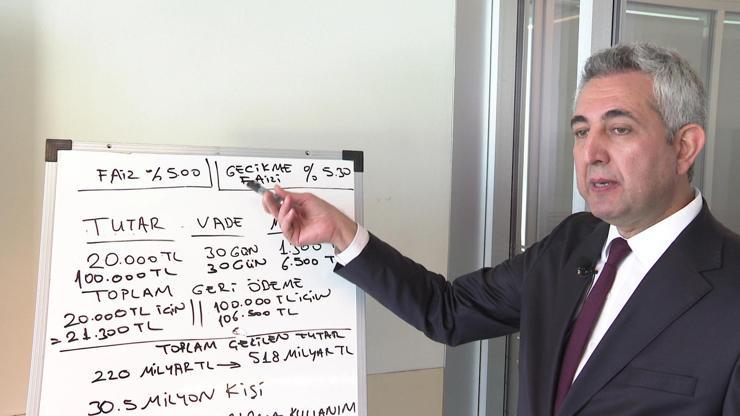 FAİZ % 5.00
GECİKME FAİZİ % 5.30
TUTAR VADE
20.000 TL 30 GÜN 1.300
100.000 TL 30 GÜN 6.500
TOPLAM GERİ ÖDEME
20.000 TL İÇİN || 100.000 TL İÇİN
= 21.300 TL 106.500 TL
TOPLAM ÇEKİLEN TUTAR
220 MİLYAR TL → 518 MİLYAR TL
30.5 MİLYON KİŞİ
KULLANIM